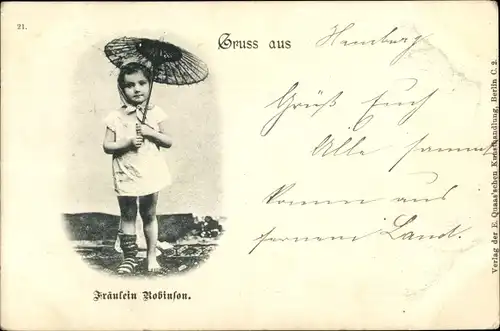 21.
Gruss aus
Hamburg
Grüß Euch
Alle sammt
komm aus
fernem Land.
Fräulein Robinson.
Verlag der E. Quaas'schen Kunsthandlung, Berlin C. 2.